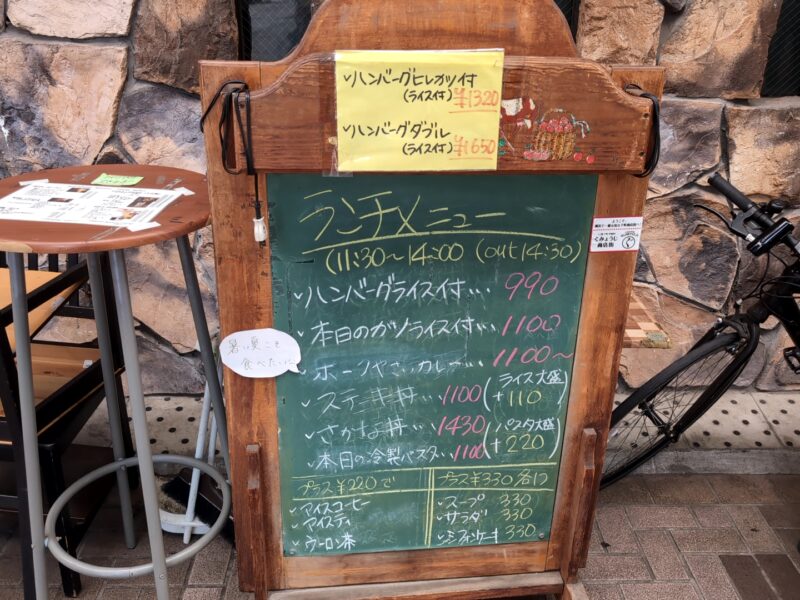 ✓ハンバーグヒレカツ付
(ライス付) ¥1320
✓ハンバーグダブル
(ライス付) ¥1650
ランチメニュー
(11:30〜14:00 (out 14:30)
✓ハンバーグライス付… 990
✓本日のガツライス付… 1100
✓ポークやさいカレー… 1100〜
✓ステーキ丼… 1100 (ライス大盛 +110)
✓さかな丼… 1430 (パスタ大盛 +220)
✓本日の冷製パスタ… 1100
暑い夏こそ
食べたい!!
プラス¥220で
✓アイスコーヒー
✓アイスティ
✓ウーロン茶
プラス¥330各1つ
✓スープ 330
✓サラダ 330
✓シフォンケーキ 330
ようこそ
くみょうじ
商店街